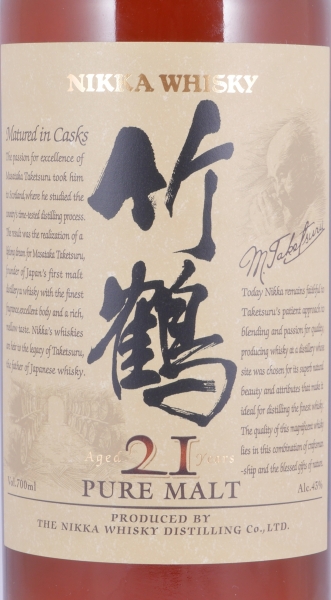 NIKKA WHISKY
Matured in Casks
The passion for excellence of
Masataka Taketsuru took him
to Scotland, where he studied the
country's time-tested distilling process.
The result was the realization of a
lifelong dream for Masataka Taketsuru,
founder of Japan's first malt
distillery: a whisky with the finest
fragrance, excellent body and a rich,
mellow taste. Nikka's whiskies
are the legacy of Taketsuru,
the father of Japanese whisky.
竹鶴
M. Taketsuru
Today Nikka remains faithful to
Taketsuru's patient approach to
blending and passion for quality,
producing whisky at a distillery whose
site was chosen for its superb natural
beauty and attributes that make it
ideal for distilling the finest whisky.
The quality of this magnificent whisky
lies in this combination of craftsman
-ship and the blessed gifts of nature.
Aged 21 Years
Vol.700ml
PURE MALT
Alc.43%
PRODUCED BY
THE NIKKA WHISKY DISTILLING Co., LTD.